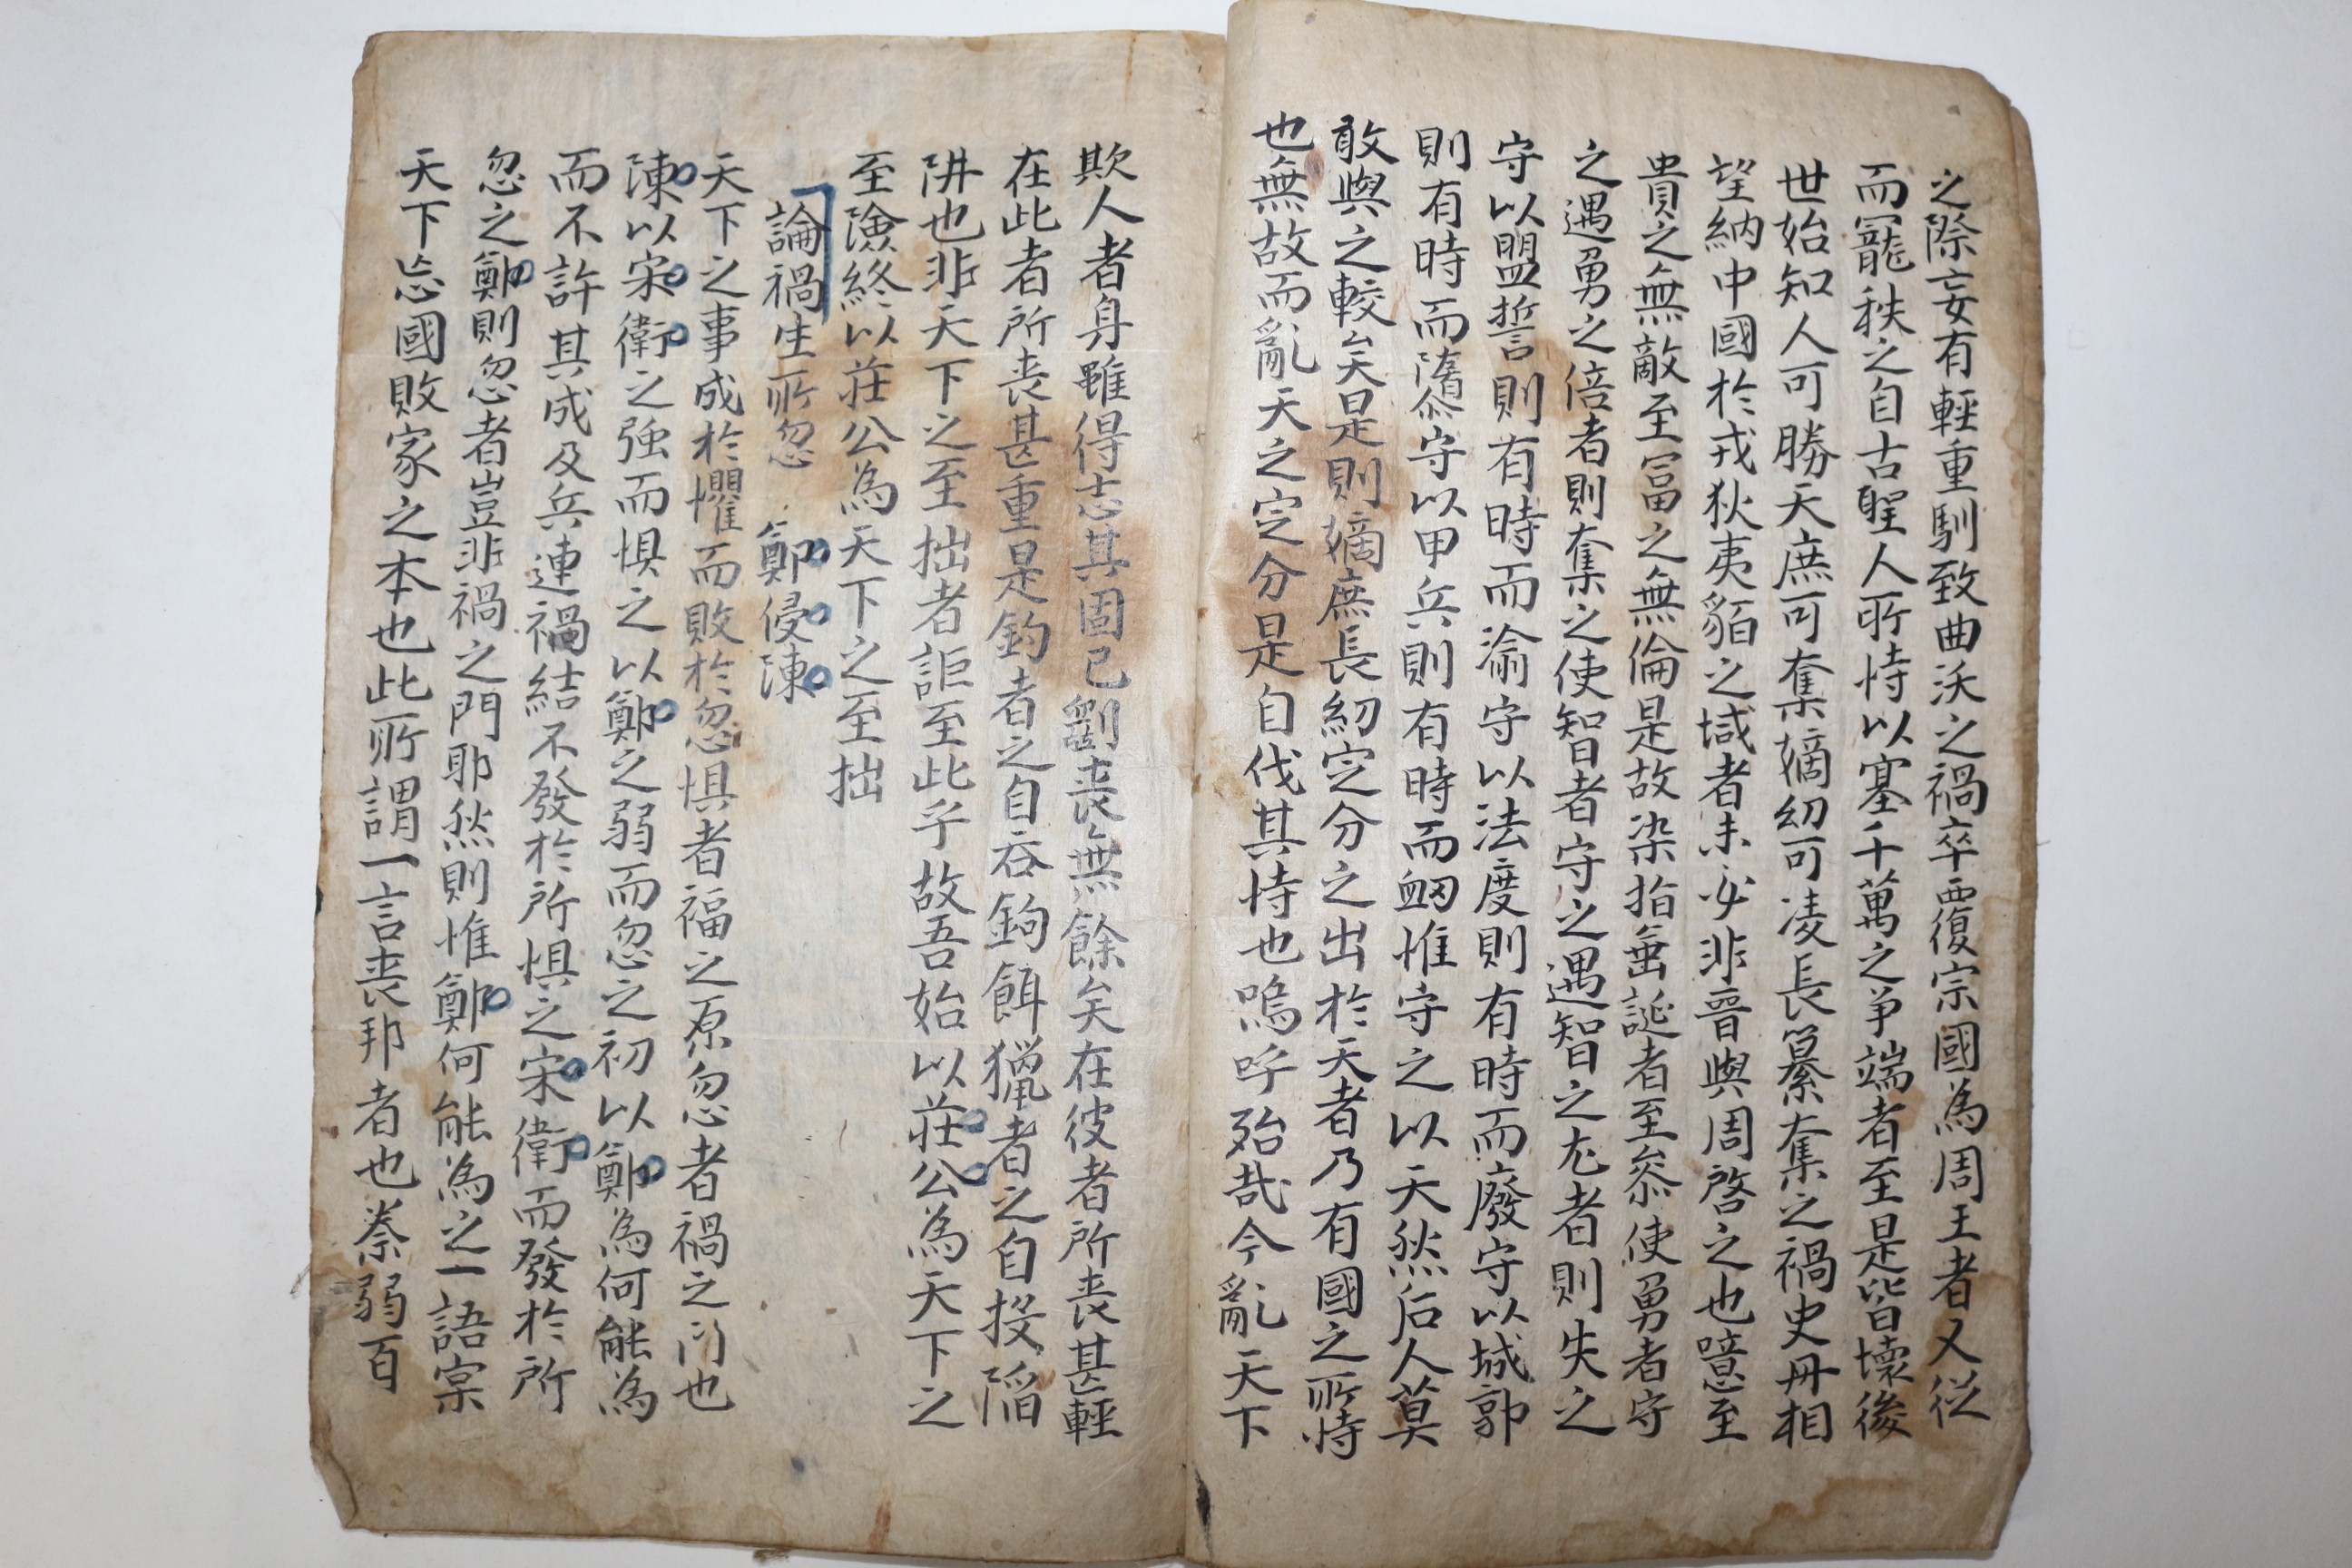 之際妄有輕重馴致曲沃之禍卒覆宗國為周王者又從
而寵秩之自古聖人所恃以塞千萬之爭端者至是皆壞後
世始知人可勝天庶可奪嫡幼可凌長簒奪之禍史冊相
望納中國於戎狄夷貊之域者未必非晉與周啓之也噫至
貴之無敵至冨之無倫是故染指垂誕者至衆使勇者守
之遇勇之倍者則奪之使智者守之遇智之尤者則失之
守以盟誓則有時而渝守以法度則有時而廢守以城郭
則有時而隳守以甲兵則有時而衂惟守之以天然后人莫
敢與之較矣是則嫡庶長幼定分之出於天者乃有國之所恃
也無故而亂天之定分是自伐其恃也嗚呼殆哉今亂天下
欺人者身雖得志其固已斵喪無餘矣在彼者所喪甚輕
在此者所喪甚重是釣者之自吞鉤餌獵者之自投陷
阱也非天下之至拙者詎至此乎故吾始以莊公為天下之
至險終以莊公為天下之至拙
論禍生所忽 鄭侵陳
天下之事成於懼而敗於忽惧者福之原忽者禍之门也
陳以宋衛之強而惧之以鄭之弱而忽之初以鄭為何能為
而不許其成及兵連禍結不發於所惧之宋衛而發於所
忽之鄭則忽者豈非禍之門耶然則惟鄭何能為之一語寀
天下忘國敗家之本也此所謂一言喪邦者也桊弱百